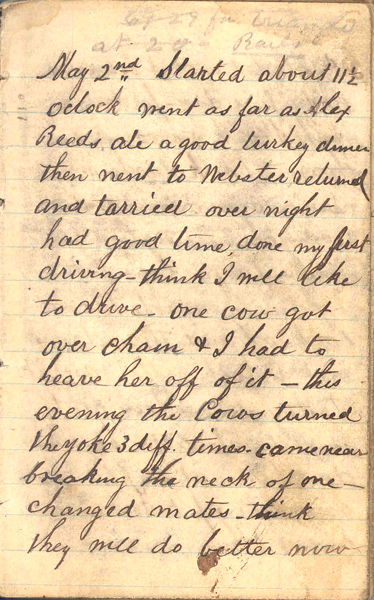 at 2
May 2nd Started about 11½
oclock went as far as Alex
Reeds. ate a good turkey dinner
then went to Webster returned
and tarried over night
had good time, done my first
driving - think I will like
to drive - one cow got
over chain & I had to
heave her off of it - this
evening the Cows turned
the yoke 3 diff. times - came near
breaking the neck of one -
changed mates - think
they will do better now